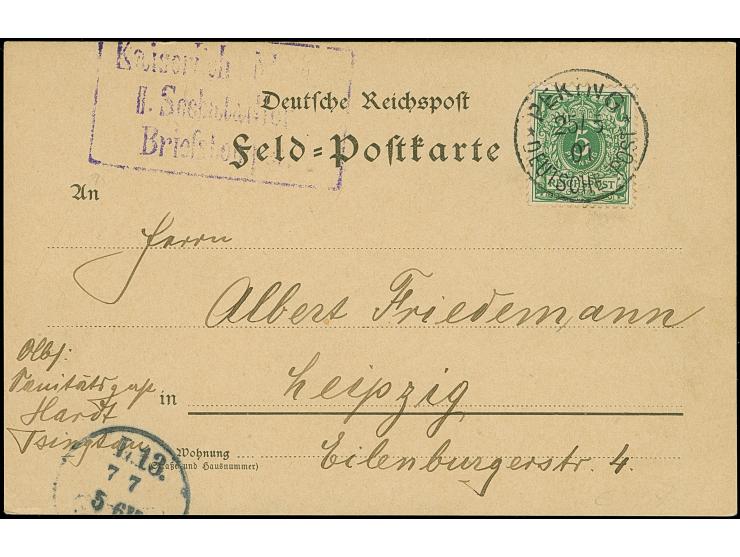 Kaiserliche
II. Seebataillon
Deutsche Reichspost
Feld=Postkarte
PEKING
25/5
01
DEUTSCHE POST
5
REICHSPOST
An
Herrn
Albert Friedemann
in Leipzig
Wohnung Eilenburgerstr. 4.
(Straße und Hausnummer)
Abs:
Hardt
Tsingtau
L. 13.
7 7
5-6